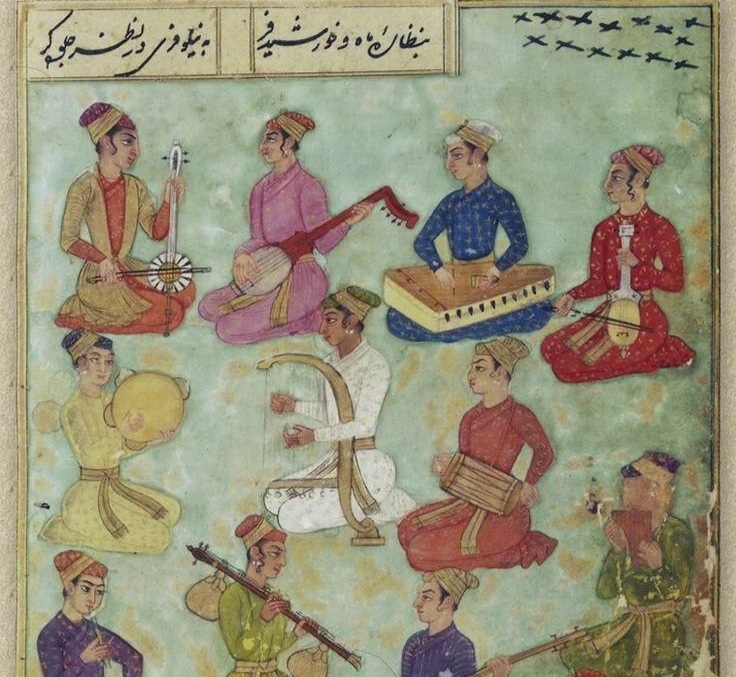 بنظارهٔ ماه و خورشید فر به نیلوفری در نظر جلوه گر